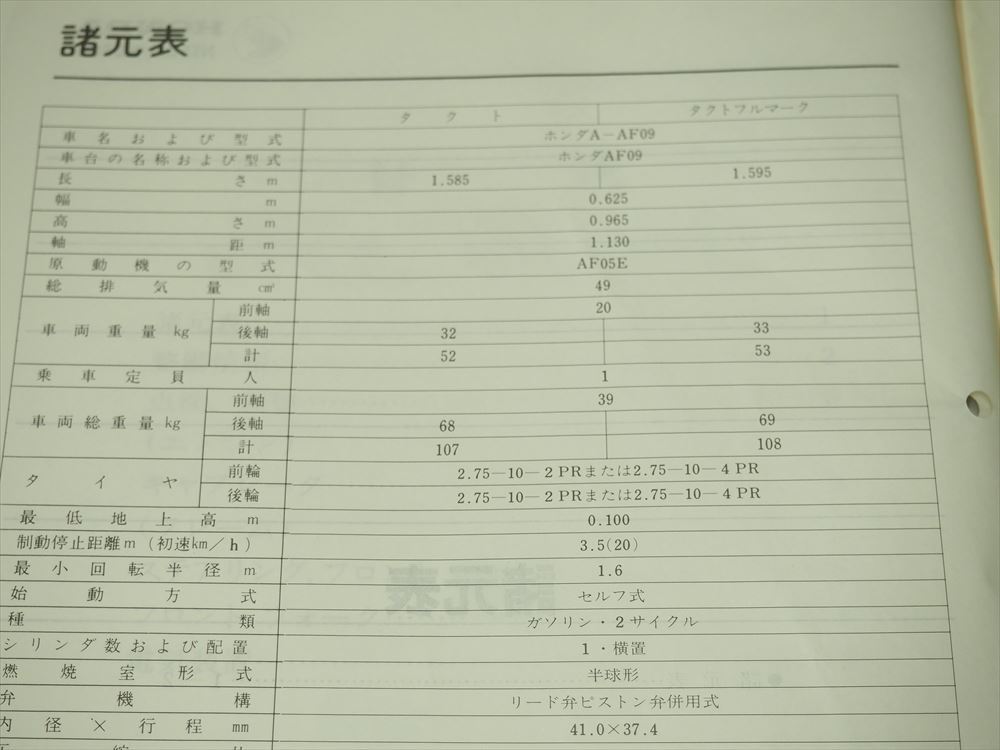 諸元表
タクト タクトフルマーク
車名および型式 ホンダA－AF09
車台の名称および型式 ホンダAF09
長さm 1.585 1.595
幅m 0.625
高さm 0.965
軸距m 1.130
原動機の型式 AF05E
総排気量cm³ 49
車両重量kg 前軸 20
後軸 32 33
計 52 53
乗車定員人 1
車両総重量kg 前軸 39
後軸 68 69
計 107 108
タイヤ 前輪 2.75－10－2PRまたは2.75－10－4PR
後輪 2.75－10－2PRまたは2.75－10－4PR
最低地上高m 0.100
制動停止距離m（初速km／h） 3.5(20)
最小回転半径m 1.6
始動方式 セルフ式
種類 ガソリン・2サイクル
シリンダ数および配置 1・横置
燃焼室形式 半球形
弁機構 リード弁ピストン弁併用式
内径×行程mm 41.0×37.4